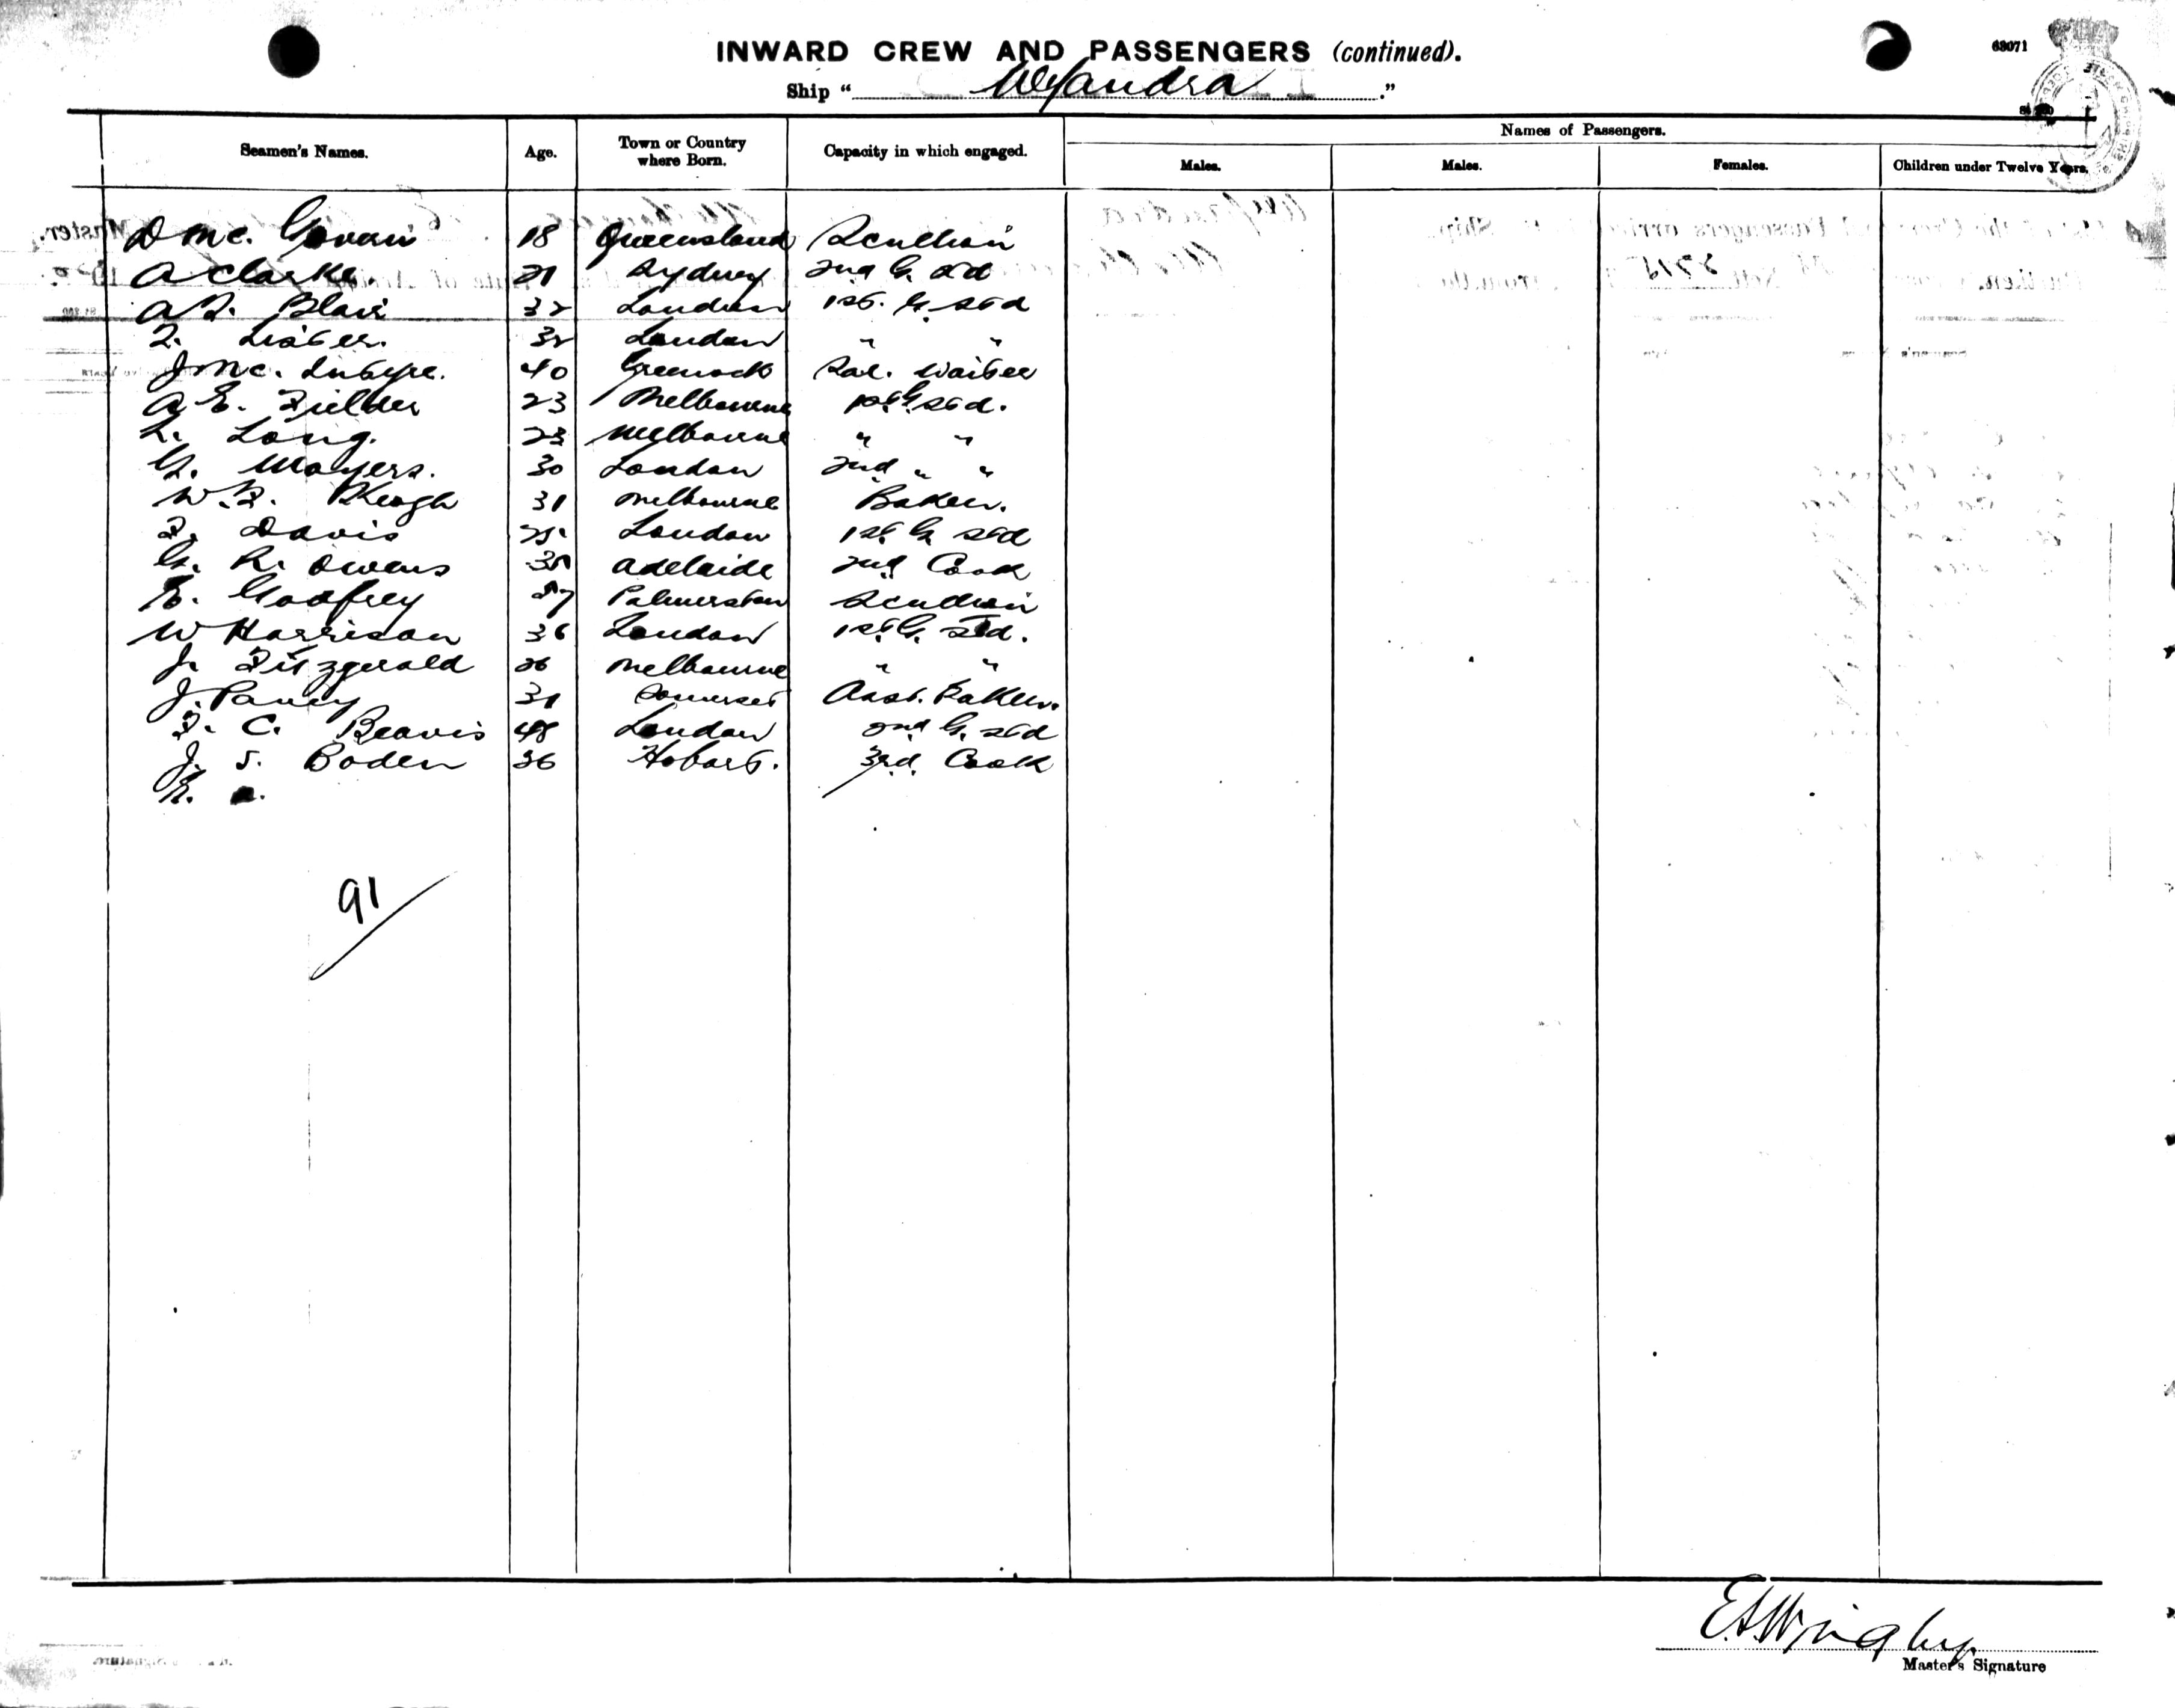 INWARD CREW AND PASSENGERS (continued).
63071
Ship " Wyandra ."
Names of Passengers.
Seamen's Names. Age. Town or Country where Born. Capacity in which engaged. Males. Males. Females. Children under Twelve Years.
D Mc. Govan 18 Queensland Scullion
A Clarke. 21 Sydney 2nd G. Std
A. F. Blair 32 London 1st. G. Std
F. Lister. 32 London " "
J Mc. Intyre. 40 Greenock Sal. Waiter
A E. Fielder 23 Melbourne 1st G. Std.
L. Long. 23 Melbourne " "
G. Mayers. 30 London 2nd " "
W. F. Keogh 31 Melbourne Baker.
F. Davis 25 London 1st G. Std
G. R. Owens Adelaide 2nd Cook
E. Godfrey Palmerston Scullion
W Harrison 36 London 1st G. Std.
J. Fitzgerald 26 Melbourne " "
J. 31 Somerset Asst. Baker.
F. C. Beavis 48 London 2nd G. Std
J. S. Boden 36 Hobart. 3rd. Cook
91
Master's Signature